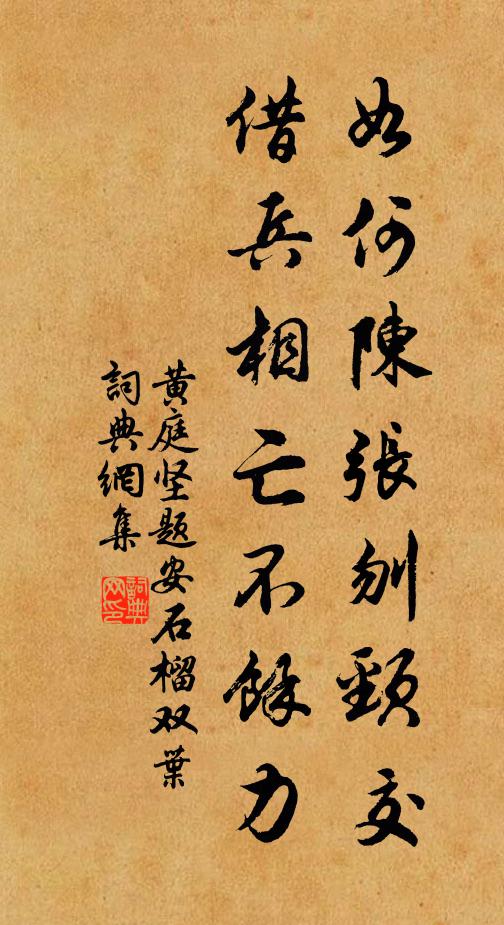 如何陳張刎頸交
借兵相亡不餘力
黄庭坚题安石榴双葉
詞典網集
詞典網印